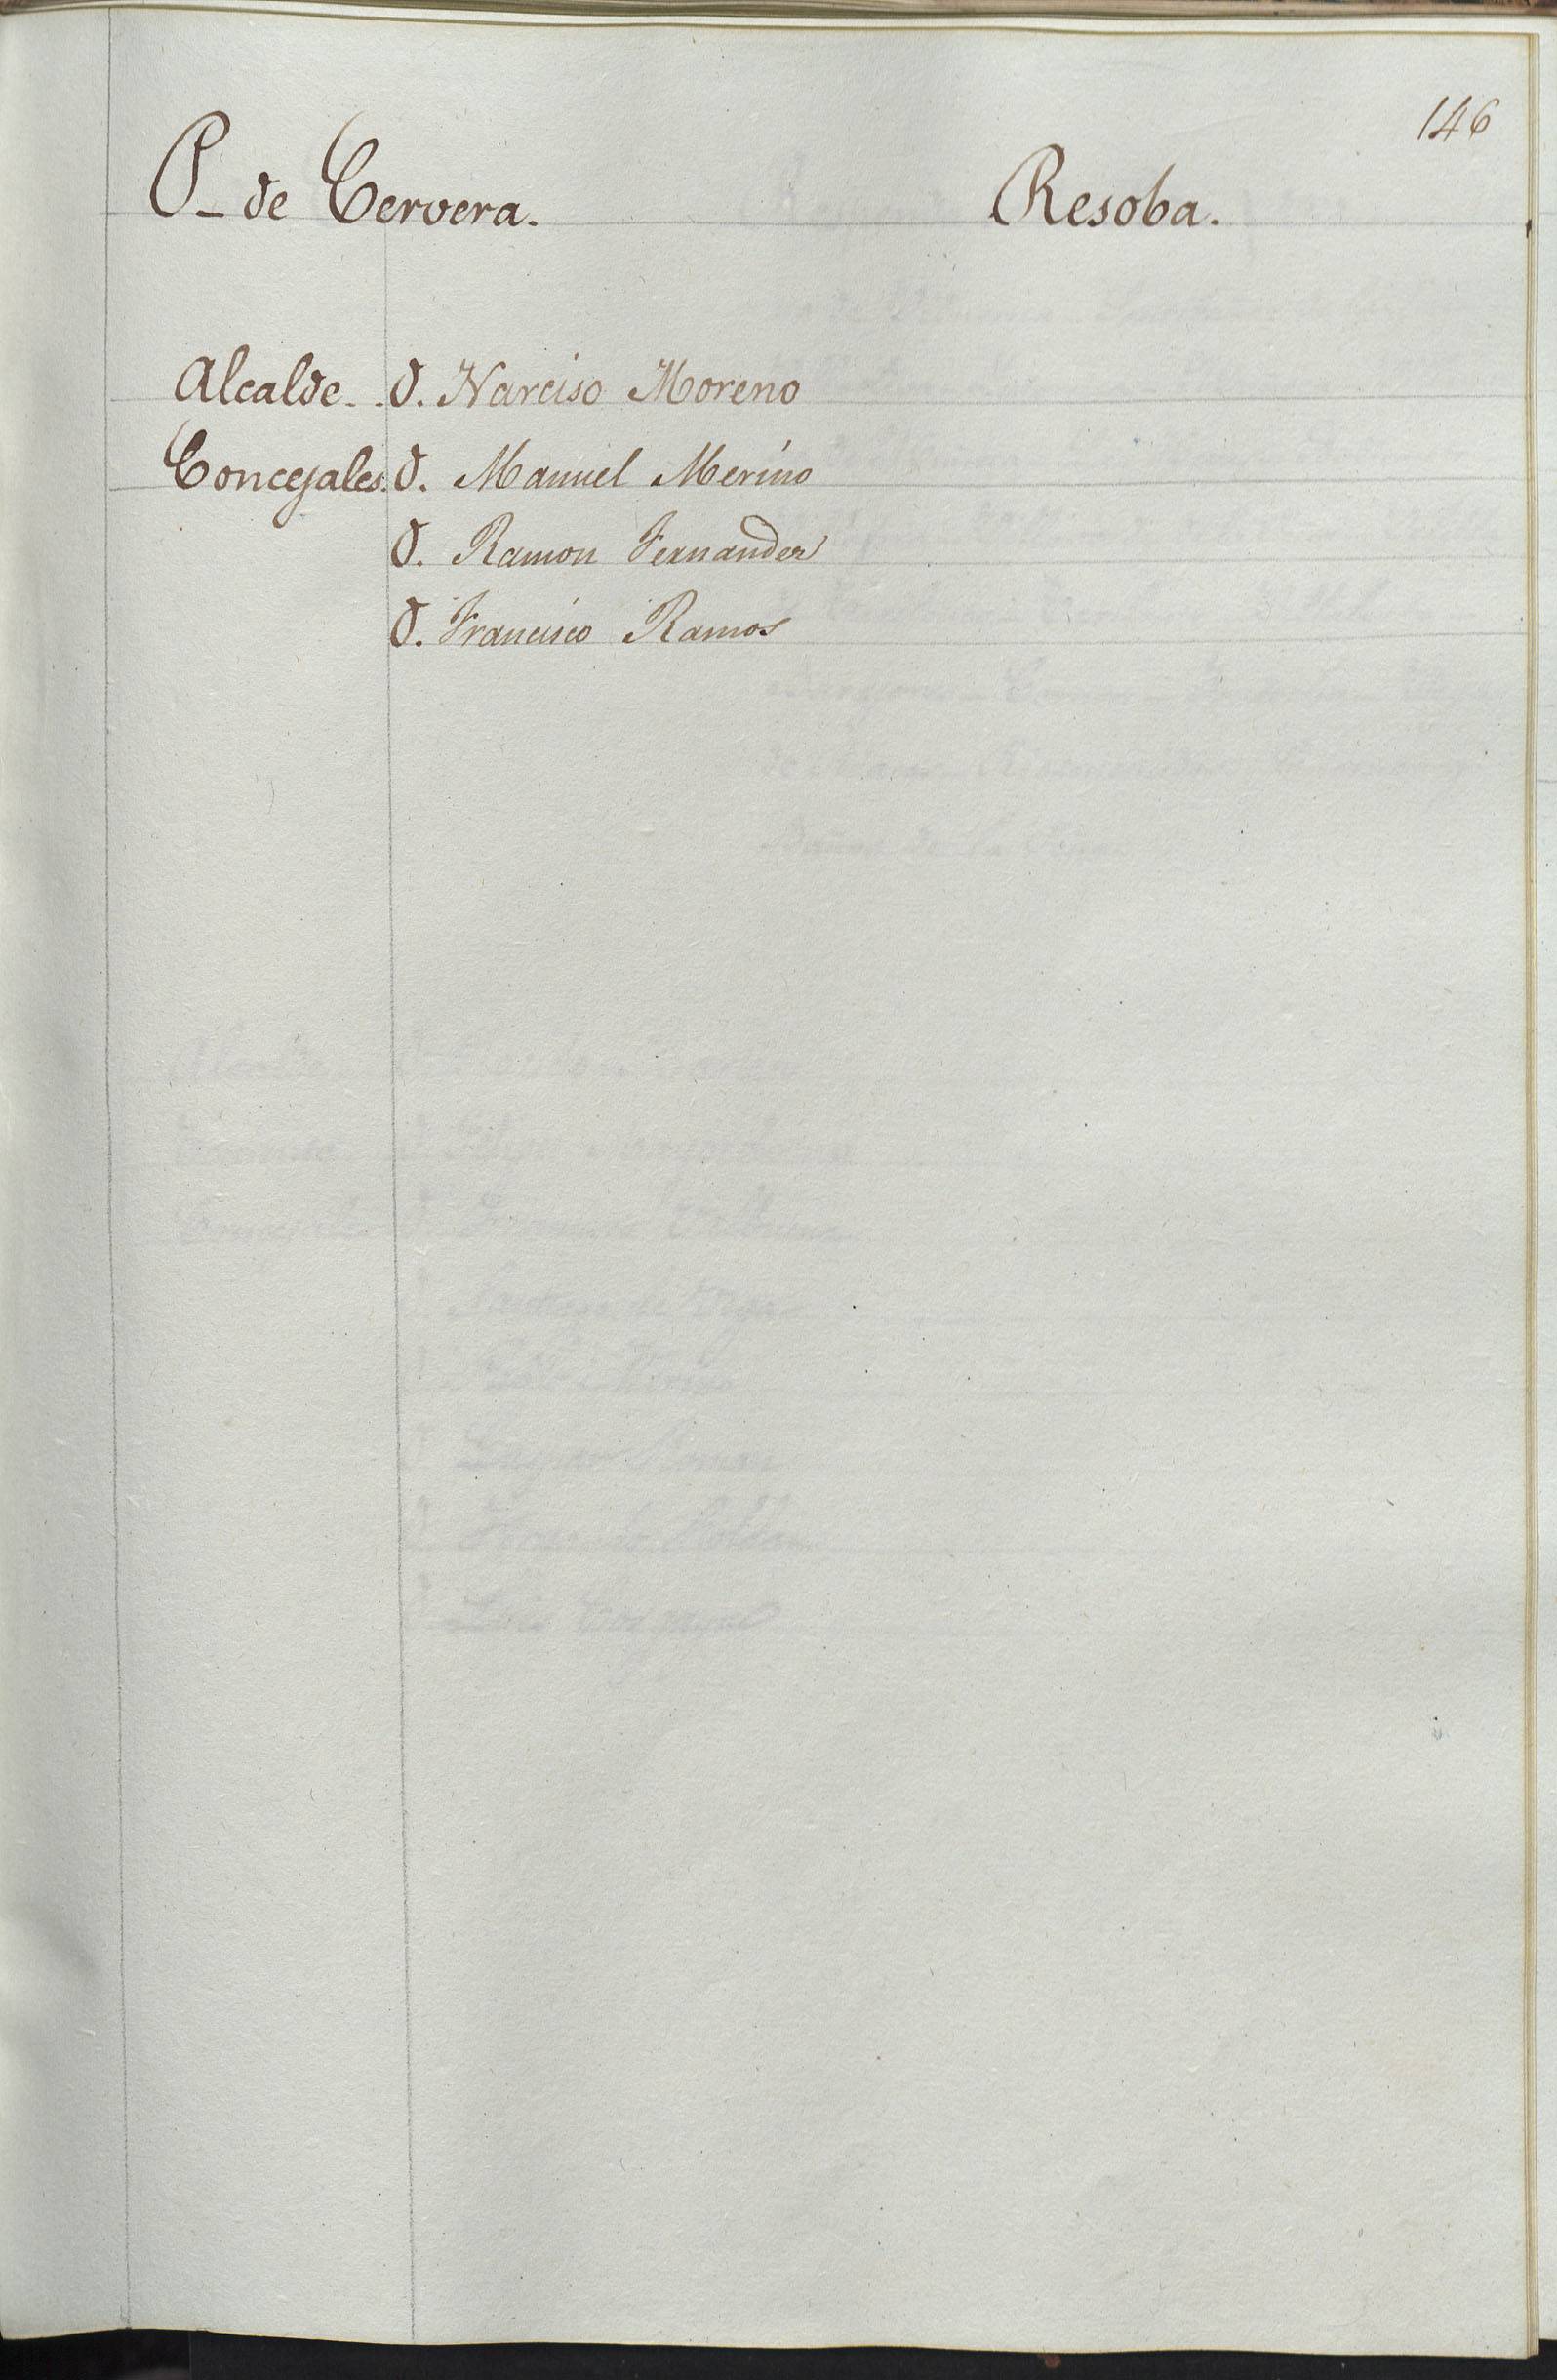 146
P_ de Cervera. Resoba.
Alcalde - . D. Narciso Moreno
Concejales. D. Manuel Merino
D. Ramon Fernandez
D. Francisco Ramos